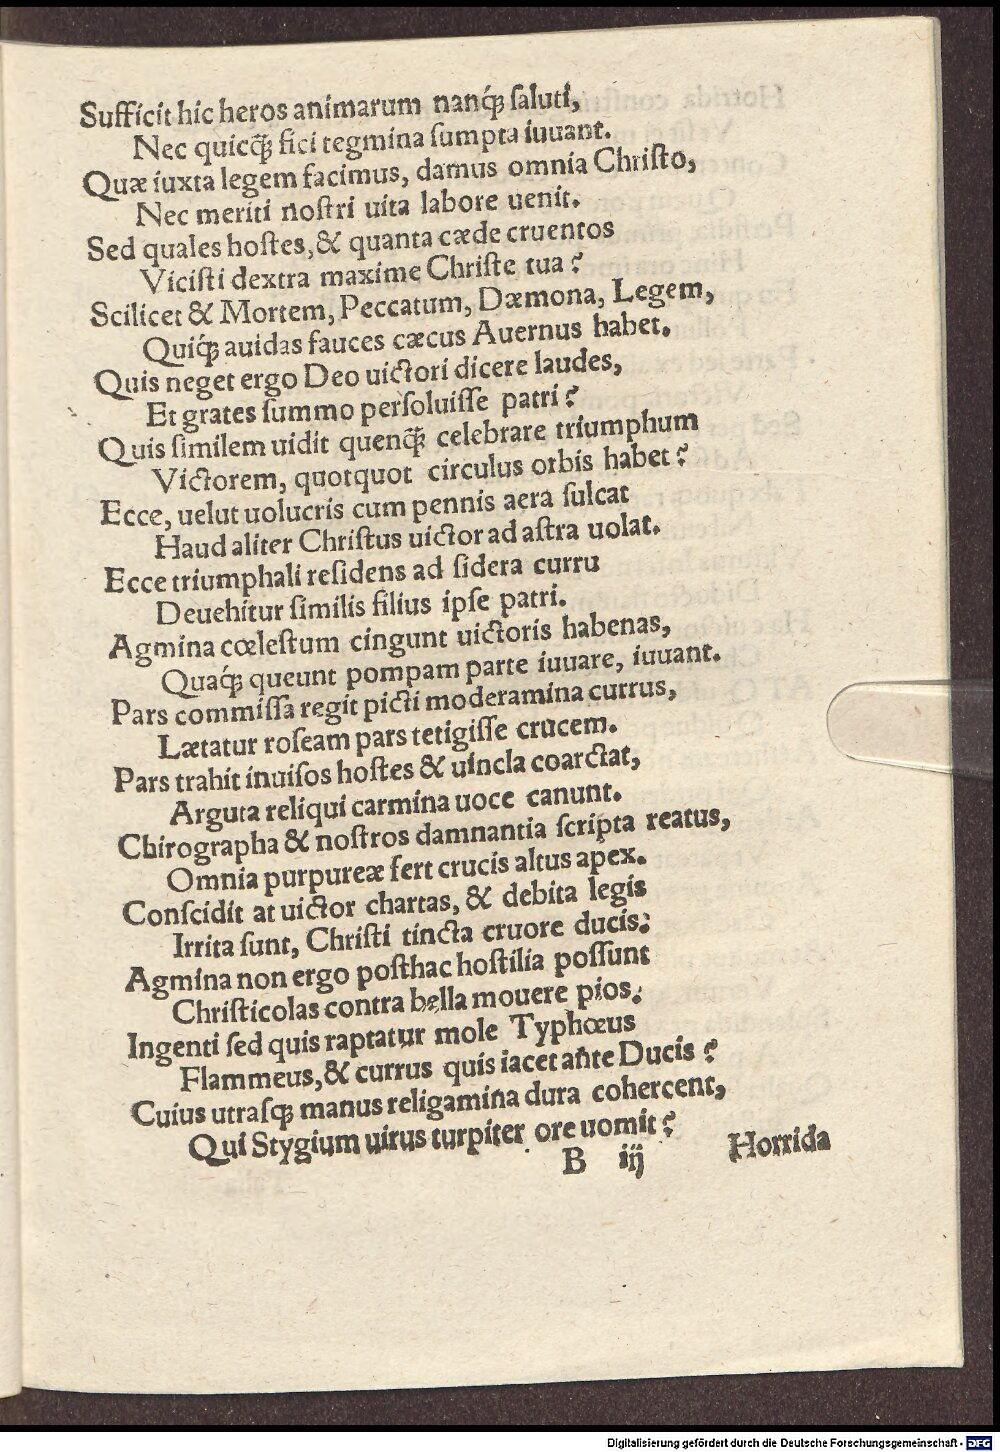 Sufficit hic heros animarum nanq́ꝫ ſaluti,
Nec quicq̃ꝫ fici tegmina ſumpta iuuant.
Quæ iuxta legem facimus, damus omnia Chriſto,
Nec meriti noſtri uita labore uenit.
Sed quales hoſtes, & quanta cæde cruentos
Viciſti dextra maxime Chriſte tua?
Scilicet & Mortem, Peccatum, Dæmona, Legem,
Quiq́ꝫ auidas fauces cæcus Auernus habet.
Quis neget ergo Deo uictori dicere laudes,
Et grates ſummo perſoluiſſe patri?
Quis ſimilem uidit quenq̃ꝫ celebrare triumphum
Victorem, quotquot circulus orbis habet?
Ecce, uelut uolucris cum pennis aera ſulcat
Haud aliter Chriſtus uictor ad aſtra uolat.
Ecce triumphali reſidens ad ſidera curru
Deuehitur ſimilis filius ipſe patri.
Agmina cœleſtum cingunt uictoris habenas,
Quaq́ꝫ queunt pompam parte iuuare, iuuant.
Pars commiſſa regit picti moderamina currus,
Lætatur roſeam pars tetigiſſe crucem.
Pars trahit inuiſos hoſtes & uincla coarctat,
Arguta reliqui carmina uoce canunt.
Chirographa & noſtros damnantia ſcripta reatus,
Omnia purpureæ fert crucis altus apex.
Conſcidit at uictor chartas, & debita legis
Irrita ſunt, Chriſti tincta cruore ducis:
Agmina non ergo poſthac hoſtilia poſſunt
Chriſticolas contra bella mouere pios:
Ingenti ſed quis raptatur mole Typhœus
Flammeus, & currus quis iacet ante Ducis?
Cuius utraſqꝫ manus religamina dura cohercent,
Qui Stygium uirus turpiter ore uomit?
B iij Horrida
Digitalisierung gefördert durch die Deutsche Forschungsgemeinschaft - DFG